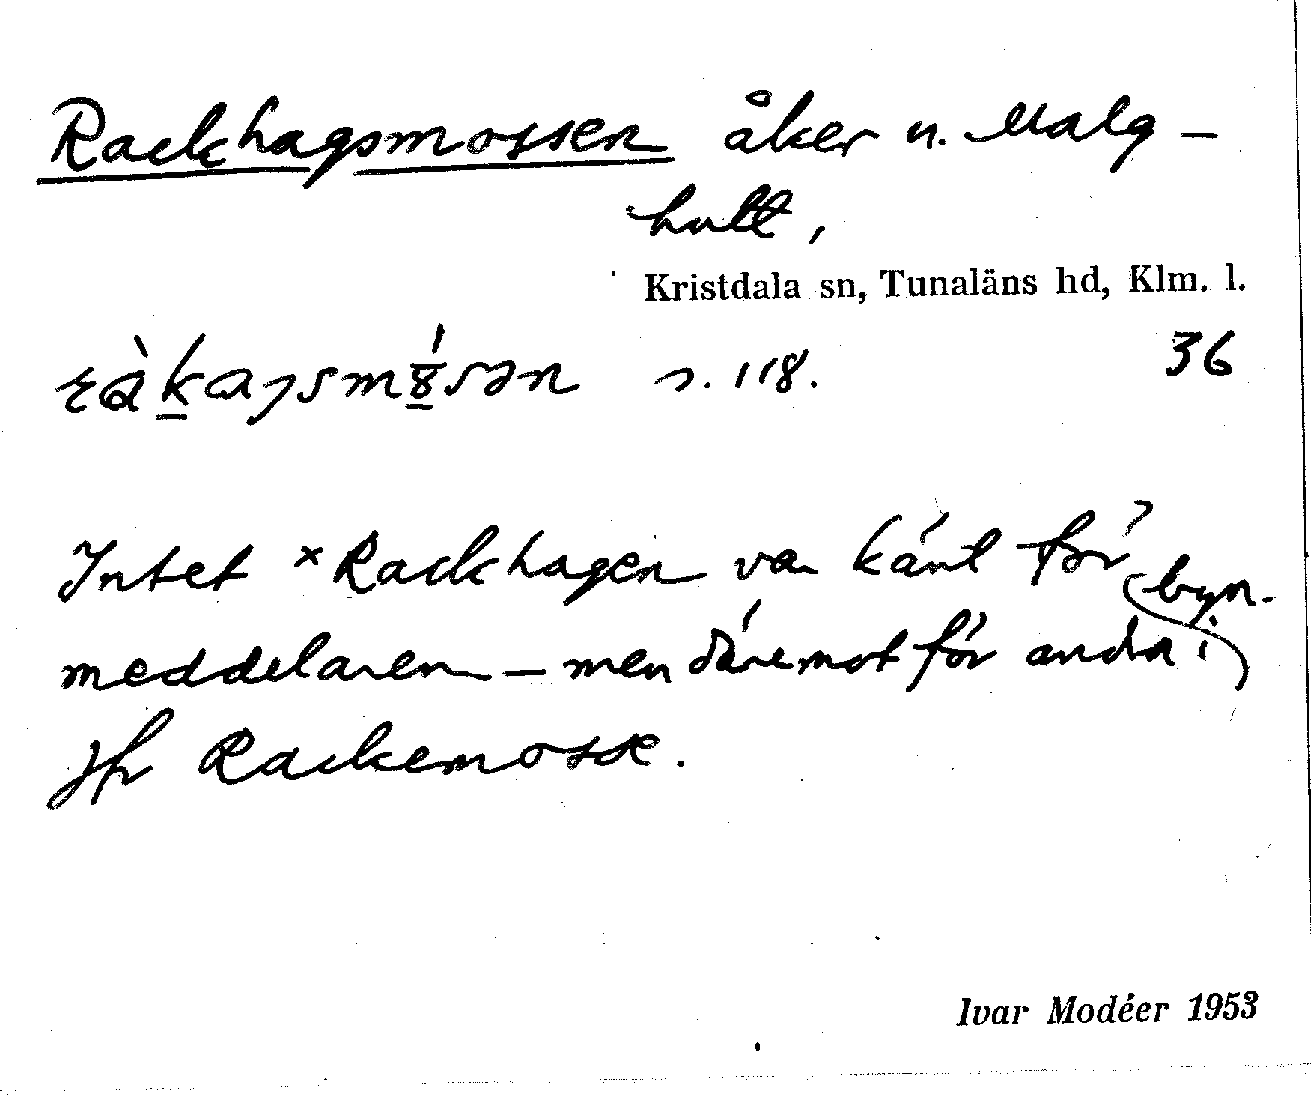 Rackhagsmossen åker u. Malg-
hult,
Kristdala sn, Tunaläns hd, Klm. l.
36
s. 118.
Intet ×Rackhagen var känt för
meddelaren – men däremot för andra i byn.
Jfr Rackemosse.
Ivar Modéer 1953